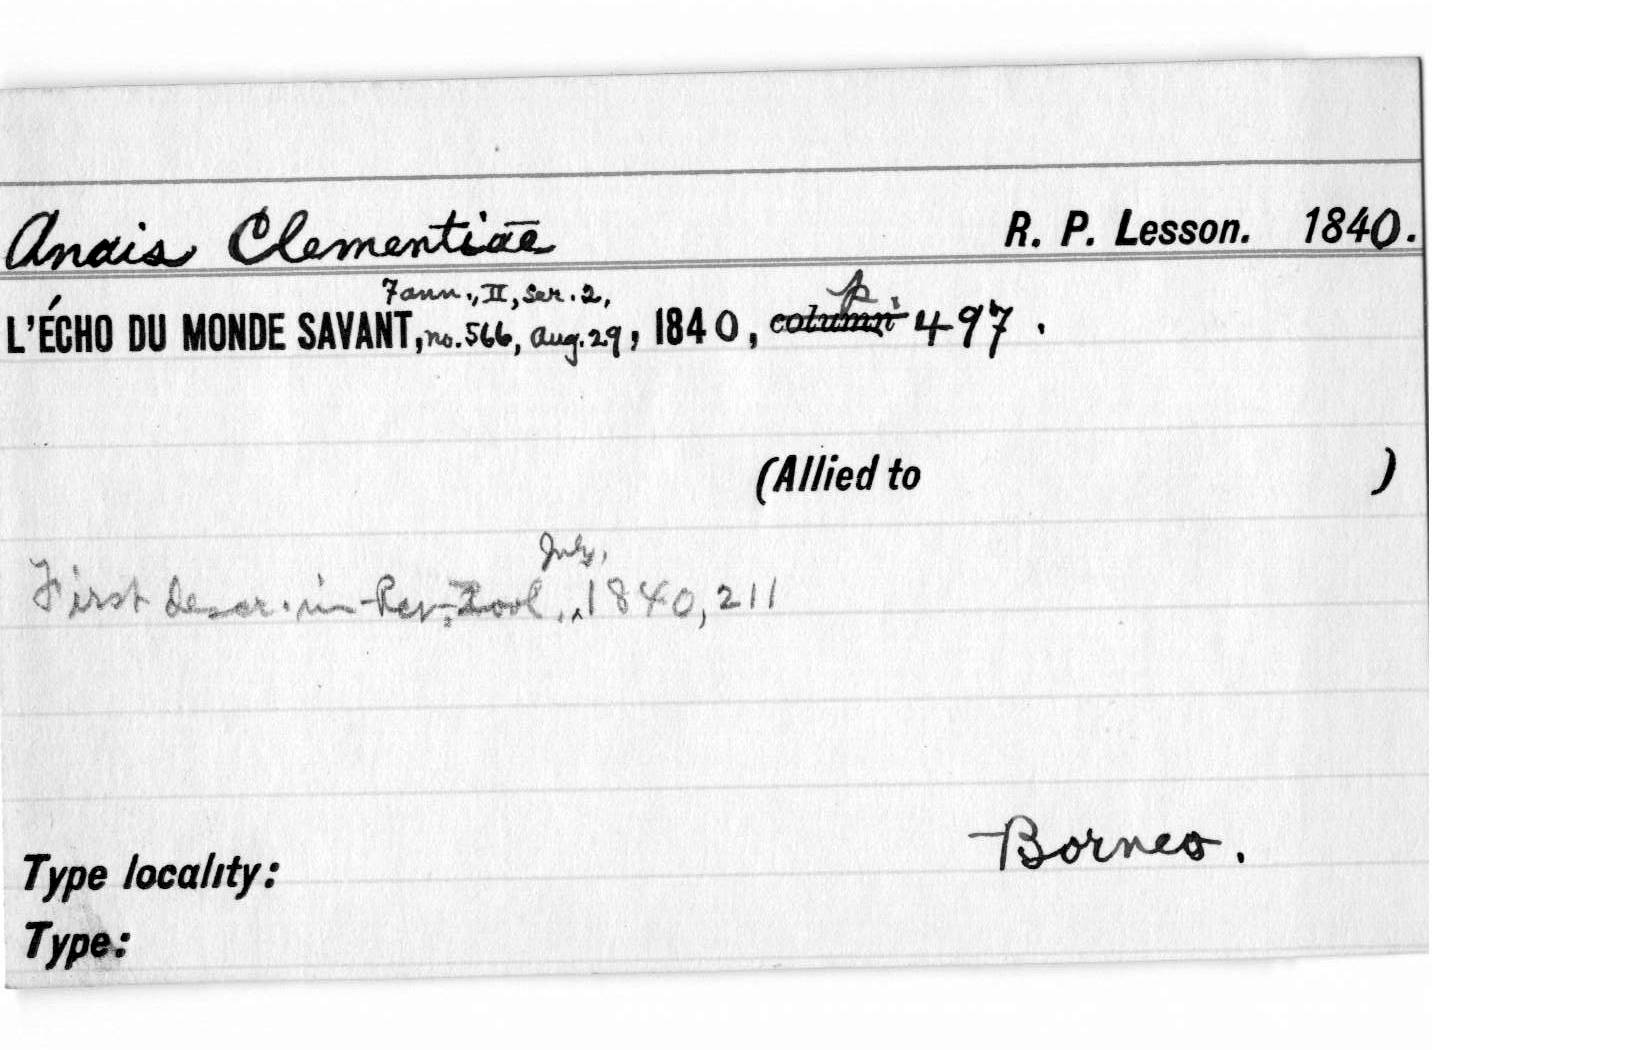 Anais Clementiae R. P. Lesson. 1840.
7 ann., II, ser. 2,
L'ÉCHO DU MONDE SAVANT, no. 566, Aug. 29, 1840, column p. 497.
(Allied to )
July,
First descr. in Rev. Zool., 1840, 211
Borneo.
Type locality:
Type: